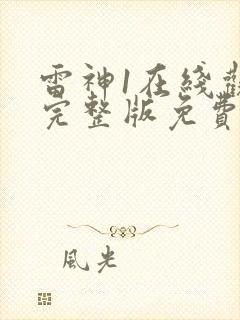 雷神1在线
完整版免费
風光